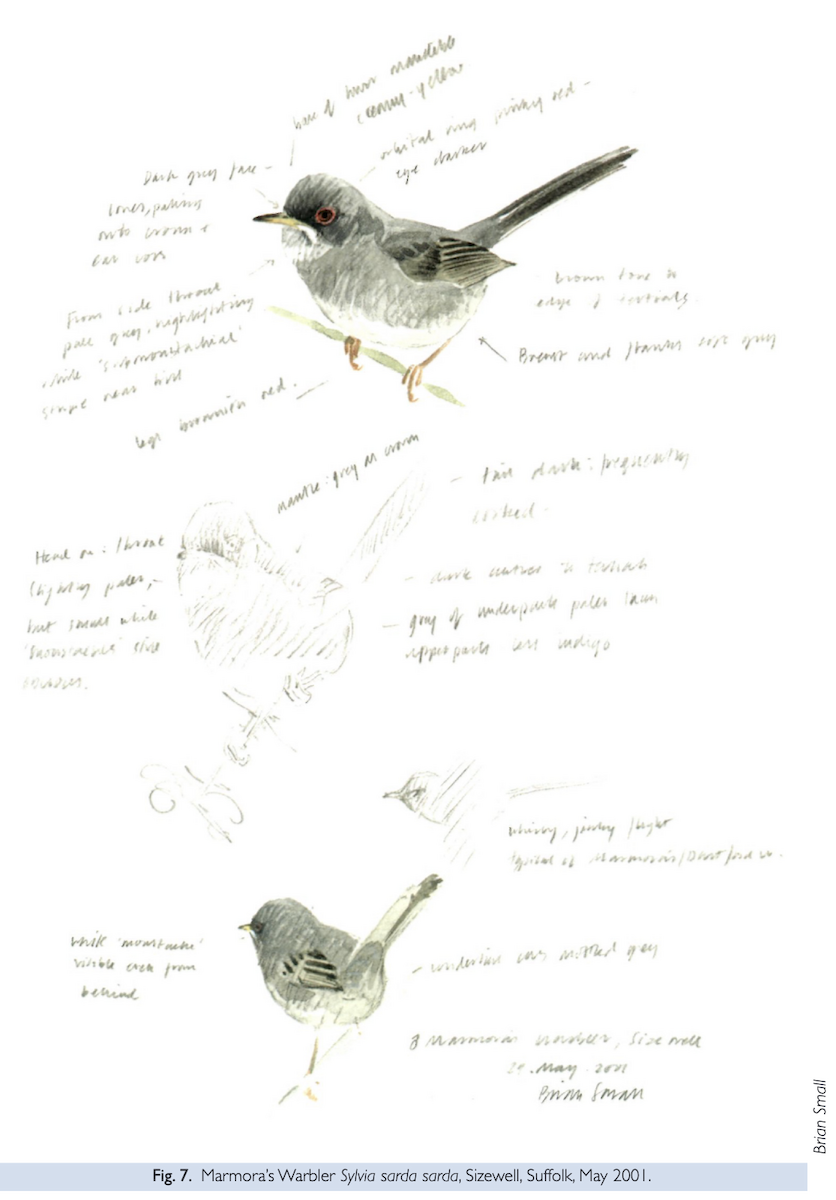 base of lower mandible
creamy-yellow
orbital ring pinky red -
eye darker
Dark grey face -
lores, paling
onto crown +
ear covs
From side throat
pale grey, highlighting
white 'submoustachial'
stripe near bill
legs brownish red.
brown tone to
edge of tertials.
Breast and flanks soft grey
mantle: grey as crown
- tail dark: frequently
cocked -
Head on: throat
slightly paler, -
but small white
'moustache'
- dark centres to tertials
- grey of underparts paler than
upperparts less indigo
whirry, jerky flight
typical of Marmora's/Dartford w.
white 'moustache'
visible even from
behind
- undertail covs mottled grey
♂ Marmora's Warbler, Sizewell
May 2001
Brian Small
Brian Small
Fig. 7. Marmora's Warbler Sylvia sarda sarda, Sizewell, Suffolk, May 2001.